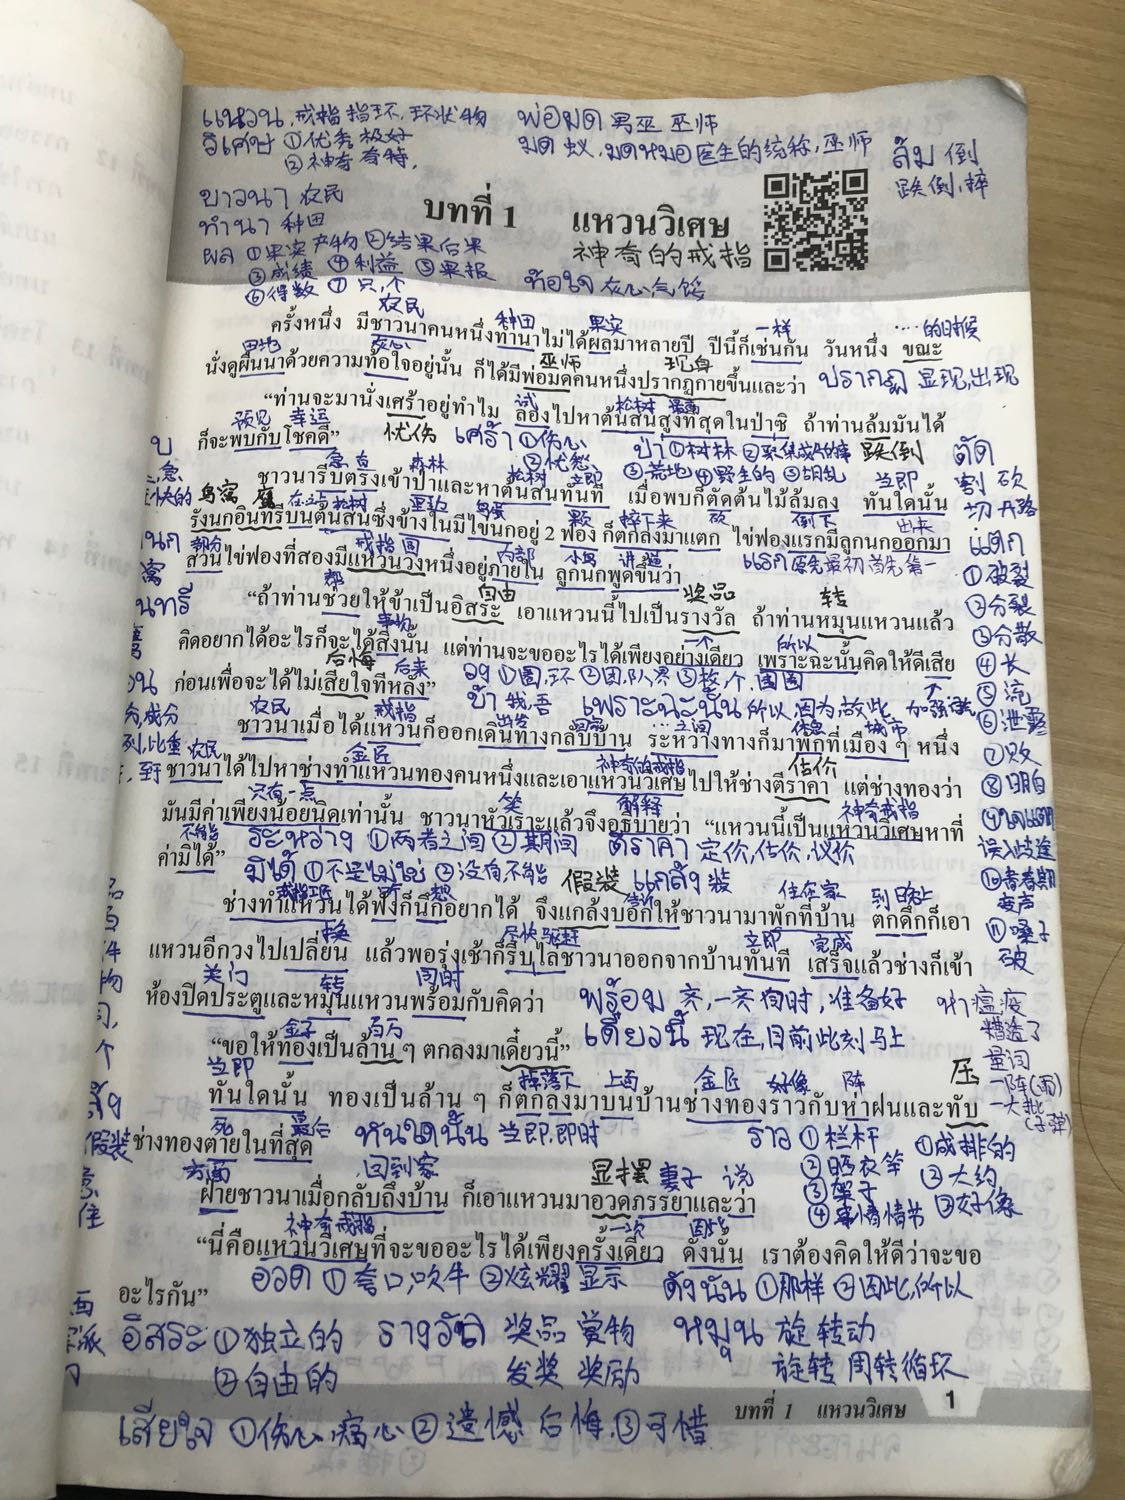 แหวน, 戒指 指环, 环状物
วิเศษ ①优秀 极好
②神奇 奇特,
ชาวนา 农民
ทำนา 种田
ผล ①果实 产物 ②结果后果
③成绩 ④利益 ⑤果报
⑥得数 ⑦只,个
พ่อมด 男巫 巫师
มด 蚁, มดหมอ 医生的统称, 巫师
ล้ม 倒
跌倒, 摔
บทที่ 1 แหวนวิเศษ
神奇的戒指
ท้อใจ 灰心气馁
农民 种田 果实 一样 ……的时候
ครั้งหนึ่ง มีชาวนาคนหนึ่งทำนาไม่ได้ผลมาหลายปี ปีนี้ก็เช่นกัน วันหนึ่ง ขณะ
田地 灰心 巫师 现身
นั่งดูผืนนาด้วยความท้อใจอยู่นั้น ก็ได้มีพ่อมดคนหนึ่งปรากฏกายขึ้นและว่า ปรากฏ 显现,出现
试 松树 最高
“ท่านจะมานั่งเศร้าอยู่ทำไม ลองไปหาต้นสนสูงที่สุดในป่าซิ ถ้าท่านล้มมันได้
预见 幸运
ก็จะพบกับโชคดี” 忧伤 เศร้า ①伤心 ป่า ①树林 跌倒 ตัด
②忧愁 ③荒地 ④野生的 ⑤胡乱 割 砍
急 直 森林 松树 立即 当即
ชาวนารีบตรงเข้าป่าและหาต้นสนทันที เมื่อพบก็ตัดต้นไม้ล้มลง ทันใดนั้น
鸟窝 鹰 松树 里边 颗 掉下来 砍 倒下 出来
รังนกอินทรีบนต้นสนซึ่งข้างในมีไข่นกอยู่ 2 ฟอง ก็ตกลงมาแตก ไข่ฟองแรกมีลูกนกออกมา
部分 戒指 圆 内部 小鸟 讲 แรก 原先 最初 首先 第一
ส่วนไข่ฟองที่สองมีแหวนวงหนึ่งอยู่ภายใน ลูกนกพูดขึ้นว่า
帮 自由 奖品 转
“ถ้าท่านช่วยให้ข้าเป็นอิสระ เอาแหวนนี้ไปเป็นรางวัล ถ้าท่านหมุนแหวนแล้ว
事物 一个 所以
คิดอยากได้อะไรก็จะได้สิ่งนั้น แต่ท่านจะขออะไรได้เพียงอย่างเดียว เพราะฉะนั้นคิดให้ดีเสีย
后悔 后来
ก่อนเพื่อจะได้ไม่เสียใจทีหลัง” วง ①圈,环 ②团,队,界 ③枚,个,
ข้า 我,吾 เพราะฉะนั้น 所以,因为,故此
แตก
①破裂
②分裂
③分散
④长
⑤流
⑥泄露
⑦败
⑧明白
误入歧途
⑩青春期
变声
⑪嗓子
破
农民 戒指 出发 城市
ชาวนาเมื่อได้แหวนก็ออกเดินทางกลับบ้าน ระหว่างทางก็มาพักที่เมือง ๆ หนึ่ง
农民 金匠 神奇的戒指 估价
ชาวนาได้ไปหาช่างทำแหวนทองคนหนึ่งและเอาแหวนวิเศษไปให้ช่างตีราคา แต่ช่างทองว่า
只有一点 笑 解释 神奇戒指
มันมีค่าเพียงน้อยนิดเท่านั้น ชาวนาหัวเราะแล้วจึงอธิบายว่า “แหวนนี้เป็นแหวนวิเศษหาที่
不能
ค่ามิได้” ระหว่าง ①两者之间 ②期间 ตีราคา 定价,估价,议价
มิได้ ①不是 ไม่ใช่ ②没有 不能 假装 แกล้ง 装
戒指匠 听 想 告诉 住在家 到晚上
ช่างทำแหวนได้ฟังก็นึกอยากได้ จึงแกล้งบอกให้ชาวนามาพักที่บ้าน ตกดึกก็เอา
换 尽快 驱赶 立即 完成
แหวนอีกวงไปเปลี่ยน แล้วพอรุ่งเช้าก็รีบไล่ชาวนาออกจากบ้านทันที เสร็จแล้วช่างก็เข้า
关门 转 同时
ห้องปิดประตูและหมุนแหวนพร้อมกับคิดว่า พร้อม 齐,一齐 同时, 准备好
金子 百万 เดี๋ยวนี้ 现在,目前 此刻 马上
“ขอให้ทองเป็นล้าน ๆ ตกลงมาเดี๋ยวนี้”
ห่า 瘟疫
糟透了
量词
一阵(雨)
一大批
(子弹)
当即 掉落下 上面 金匠 好像 阵 压
ทันใดนั้น ทองเป็นล้าน ๆ ก็ตกลงมาบนบ้านช่างทองราวกับห่าฝนและทับ
死 最后
ช่างทองตายในที่สุด ทันใดนั้น 当即,即时 ราว ①栏杆 ①成排的
②晒衣竿 ②大约
③架子 ③好像
④事情情节
方面 回到家 显摆 妻子 说
ฝ่ายชาวนาเมื่อกลับถึงบ้าน ก็เอาแหวนมาอวดภรรยาและว่า
神奇戒指 一次 因此
“นี่คือแหวนวิเศษที่จะขออะไรได้เพียงครั้งเดียว ดังนั้น เราต้องคิดให้ดีว่าจะขอ
อะไรกัน” อวด ①夸口,吹牛 ②炫耀 显示 ดังนั้น ①那样 ②因此,所以
อิสระ ①独立的 รางวัล 奖品 赏物 หมุน 旋 转动
②自由的 发奖 奖励 旋转 周转 循环
บทที่ 1 แหวนวิเศษ 1
เสียใจ ①伤心,痛心 ②遗憾 后悔, ③可惜